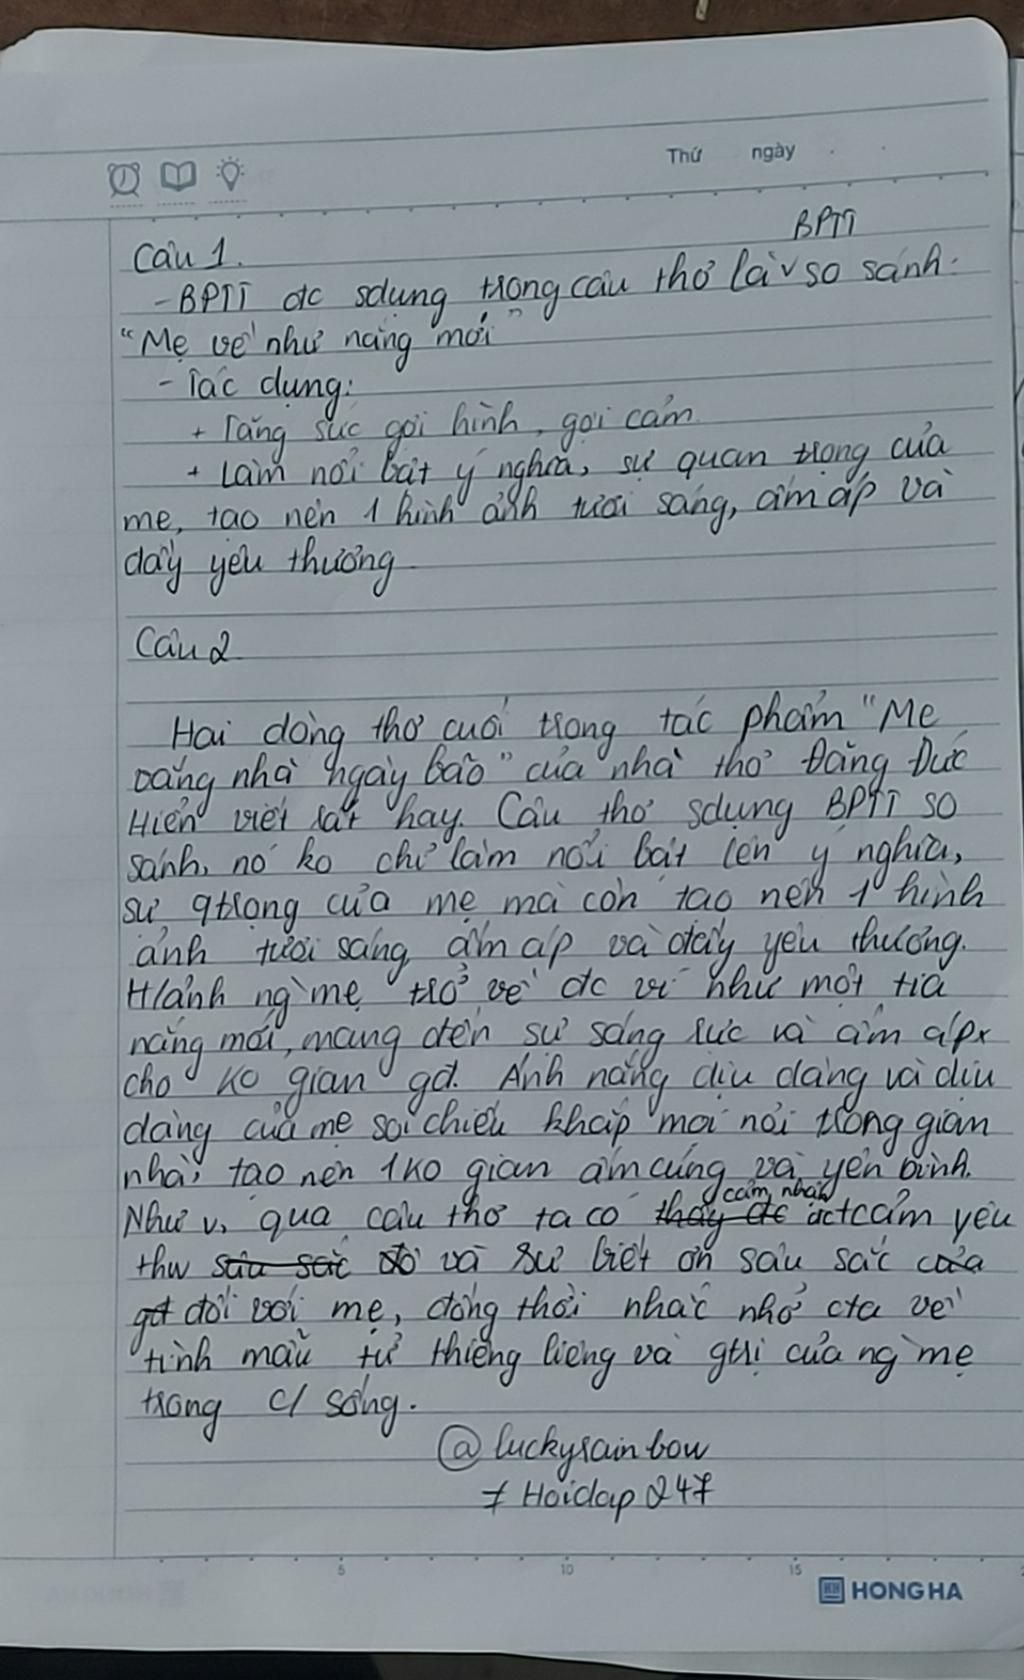 Thứ ngày
Câu 1.
BPTT
- BPTT đc sdụng trong câu thơ là v so sánh:
"Mẹ về như nắng mới"
- Tác dụng:
+ Tăng sức gợi hình, gợi cảm
+ Làm nổi bật ý nghĩa, sự quan trọng của
mẹ, tạo nên 1 hình ảnh tươi sáng, ấm áp và
đầy yêu thương
Câu 2
Hai dòng thơ cuối trong tác phẩm "Mẹ
vắng nhà ngày bão" của nhà thơ Đặng Đức
Hiển viết rất hay. Câu thơ sdụng BPTT so
sánh, nó ko chỉ làm nổi bật lên ý nghĩa,
sự qtrọng của mẹ mà còn tạo nên 1 hình
ảnh tươi sáng, ấm áp và đầy yêu thương.
H/ảnh ng mẹ trở về đc ví như một tia
nắng mới, mang đến sự sáng rực và ấm áp
cho ko gian gđ. Ánh nắng dịu dàng và dịu
dàng của mẹ soi chiếu khắp mọi nơi trong gian
nhà, tạo nên 1 ko gian ấm cúng và yên bình.
cảm nhận
Như v, qua câu thơ ta có thấy đc đc tcảm yêu
thw sâu sắc đó và sự biết ơn sâu sắc của
gđ đối với mẹ, đồng thời nhắc nhở cta về
tình mẫu tử thiêng liêng và gtrị của ng mẹ
trong c/ sống.
@luckyrainbow
# Hoidap247
5 10 15
HONG HA